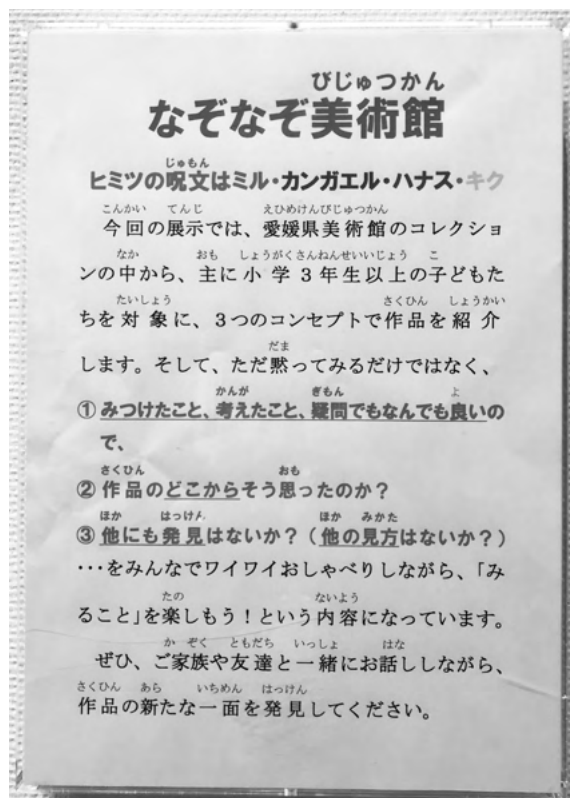 びじゅつかん
なぞなぞ美術館
じゅもん
ヒミツの呪文はミル・カンガエル・ハナス・キク
こんかい てんじ えひめけんびじゅつかん
今回の展示では、愛媛県美術館のコレクショ
なか おも しょうがくさんねんせいいじょう こ
ンの中から、主に小学３年生以上の子どもた
たいしょう さくひん しょうかい
ちを対象に、３つのコンセプトで作品を紹介
だま
します。そして、ただ黙ってみるだけではなく、
かんが ぎもん よ
①みつけたこと、考えたこと、疑問でもなんでも良いの
で、
さくひん おも
②作品のどこからそう思ったのか？
ほか はっけん ほか みかた
③他にも発見はないか？（他の見方はないか？）
･･･をみんなでワイワイおしゃべりしながら、「み
たの ないよう
ること」を楽しもう！という内容になっています。
かぞく ともだち いっしょ はな
ぜひ、ご家族や友達と一緒にお話ししながら、
さくひん あら いちめん はっけん
作品の新たな一面を発見してください。